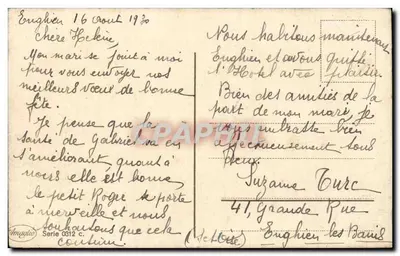 Enghien 16 aout 1930
Chère Hélène,
Mon mari se joint à moi
pour vous envoyer nos
meilleurs vœux de bonne
fête.
Je pense que la
santé de Gabriel va en
s'améliorant, quant à
nous elle est bonne,
le petit Roger se porte
à merveille et nous
souhaitons que cela
continue
Nous habitons maintenant
Enghien et avons quitté
l'Hotel avec plaisir.
Bien des amitiés de la
part de mon mari, je
vous embrasse bien
affectueusement tous
deux.
Suzanne Turc
41, Grande Rue
Enghien les Bains
CPARAMA
Serie 0312 c.